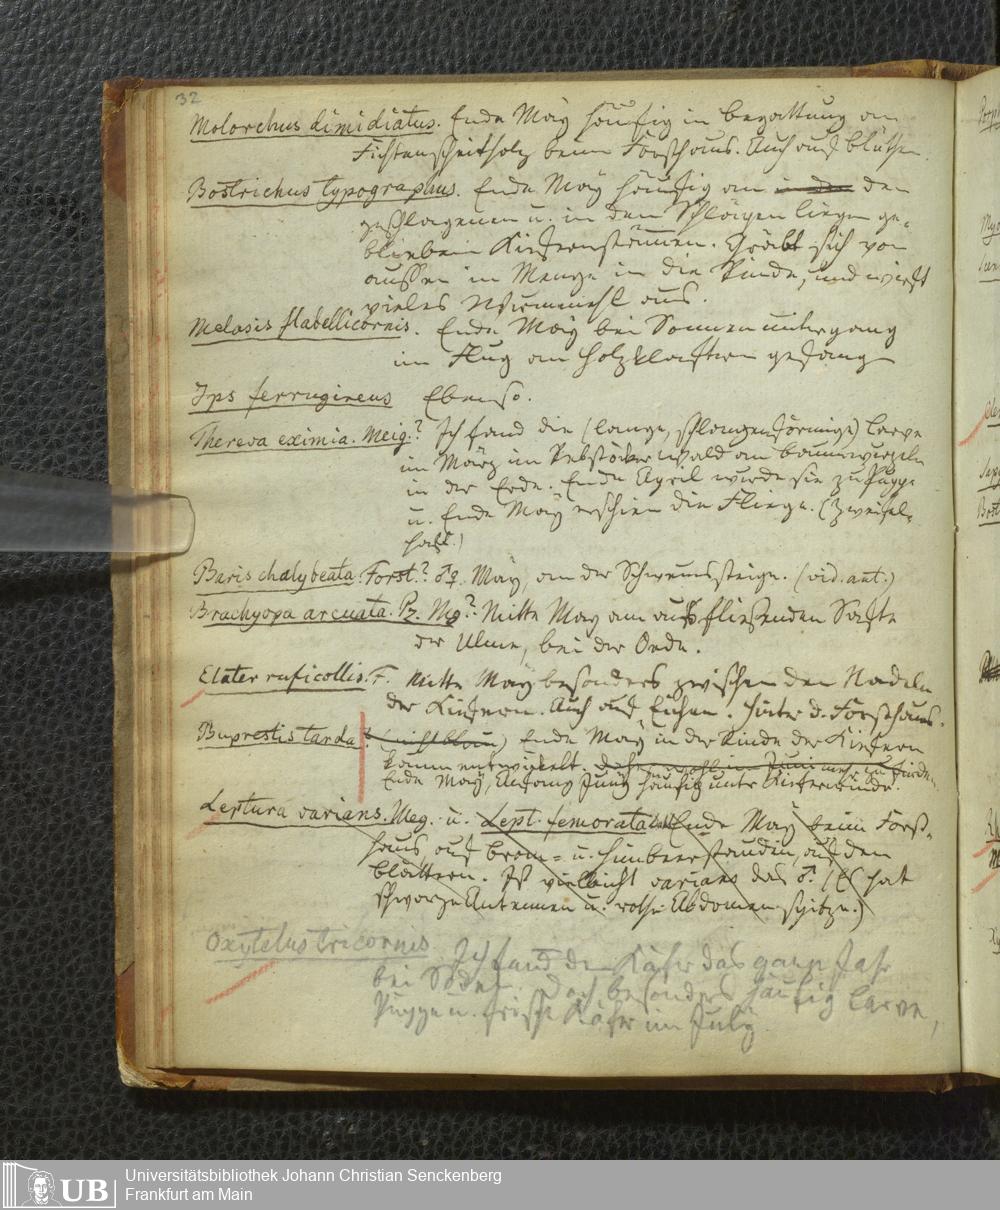 32
Molorchus dimidiatus. Ende May häufig in Begattung an
Fichtenscheitholz beim Forsthaus. Auch auf Blüthen.
Bostrichus typographus. Ende May häufig an in den den
geschlagenen u. in den Schlägen liegen ge-
bliebenen Kiefernstämmen. Gräbt sich von
aussen in Menge in die Rinde, und wirft
vieles Wurmmehl aus.
Melasis flabellicornis. Ende May bei Sonnenuntergang
im Flug an Holzklaftern gefangen
Ips ferrugineus Ebenso.
Thereva eximia. Meig.? Ich fand die (lange, schlangenförmige) Larve
im März im Rebstöcker Wald an Baumwurzeln
in der Erde. Ende April wurde sie zu Puppe
u. Ende May erschien die Fliege. (Zweifel-
haft.)
Baris chalybeata. Forst? ♂♀. May, an der Schwemsteige. (vid. ant.)
Brachyopa arcuata. Pz. Mg? Mitte May am ausfliessenden Safte
der Ulme, bei der Oede.
Elater ruficollis. F. Mitte May besonders zwischen den Nadeln
der Kiefern. Auch auf Eichen. Hinter d. Forsthaus.
Buprestis tarda? (nicht blau) Ende May in der Rinde der Kiefern
kommt entwickelt. im Juni mehr zu finden.
Ende May, Anfang Juny häufig unter Kiefernrinde.
Leptura varians. Meg. u. Lept. femorata Ende May beim Forst-
haus auf Brom- u. Himbeerstauden, auf den
Blättern. Ist vielleicht varians das ♂. (Es hat
schwarze Antennen u. rothe Abdomenspitze.)
Oxytelus tricornis Ich fand den Käfer das ganze Jahr
bei Soden. Doch besonders häufig Larve,
Puppe u. frische Käfer im July.
Universitätsbibliothek Johann Christian Senckenberg
Frankfurt am Main
UB